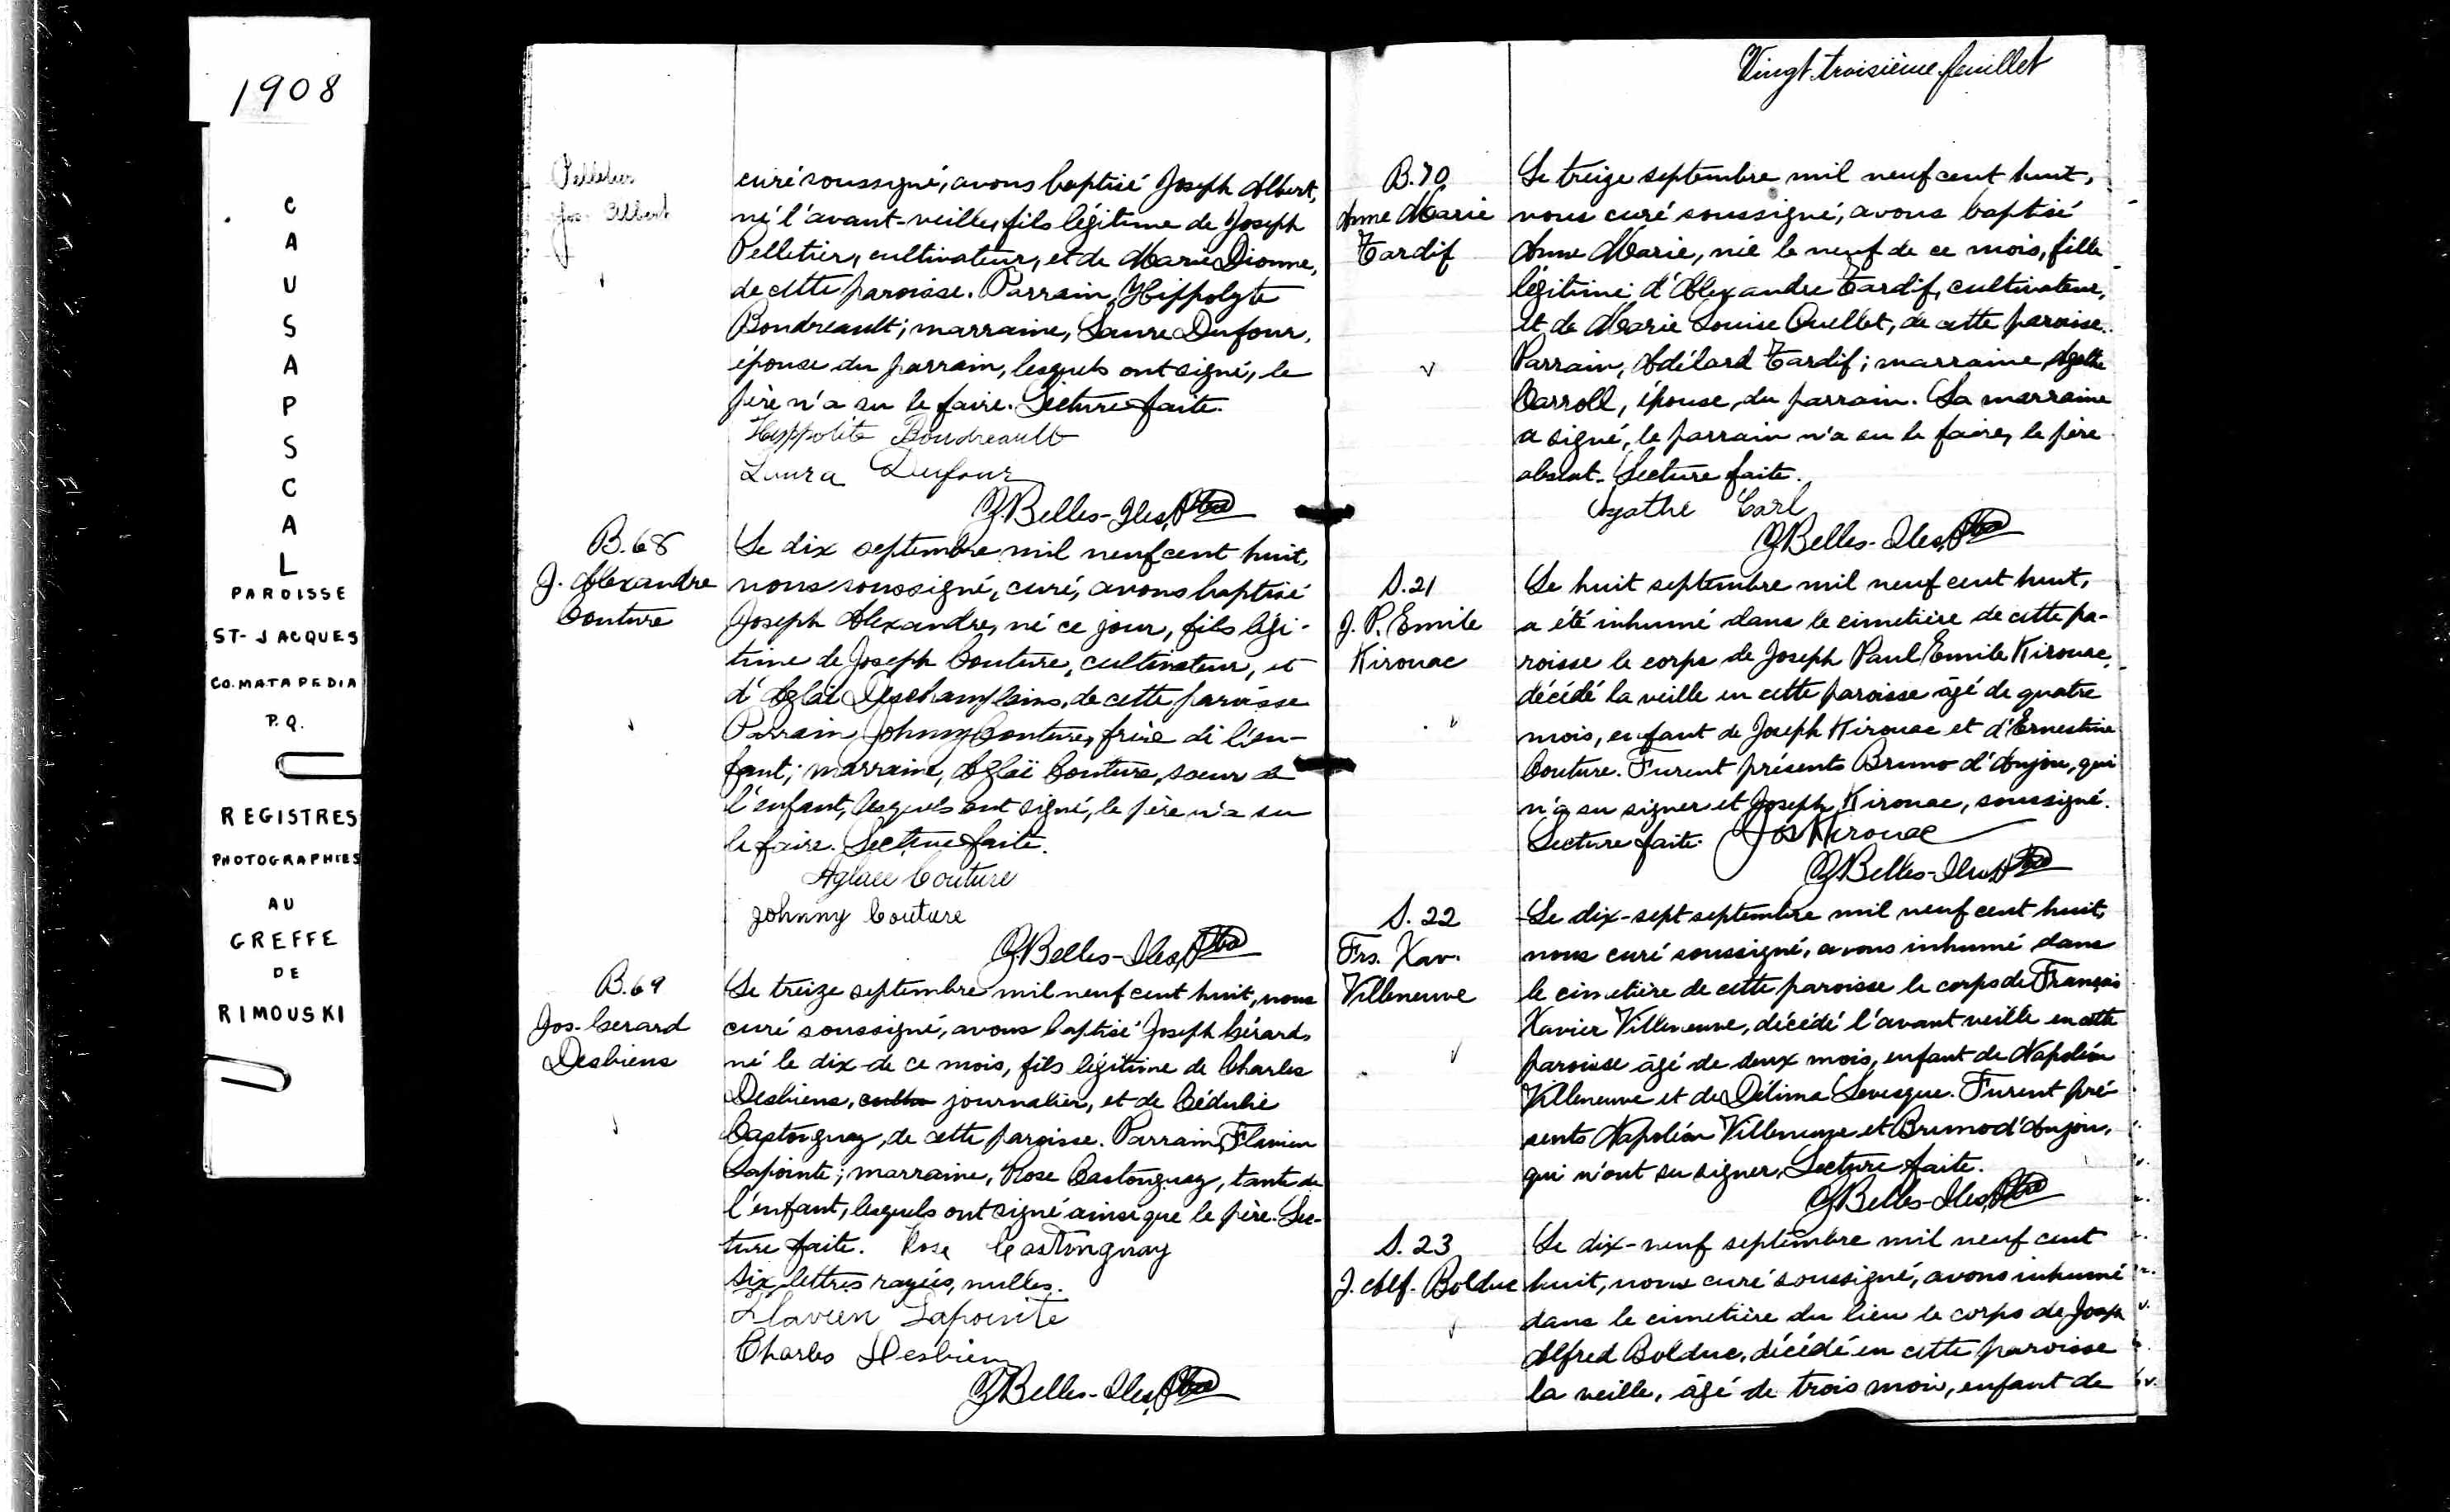 1908
CAUSAPSCAL
PAROISSE
ST-JACQUES
CO. MATAPEDIA
P.Q.
REGISTRES
PHOTOGRAPHIES
AU
GREFFE
DE
RIMOUSKI
Pelletier
Jos. Albert
curé soussigné, avons baptisé Joseph Albert,
né l'avant-veille, fils légitime de Joseph
Pelletier, cultivateur, et de Marie Dionne,
de cette paroisse. Parrain, Hippolyte
Boudreault; marraine, Laure Dufour,
épouse du parrain, lesquels ont signé, le
père n'a su le faire. Lecture faite.
Hyppolite Boudreault
Laura Dufour
J. Belles-Iles, Ptre
B. 68
J. Alexandre
Couture
Le dix septembre mil neuf cent huit,
nous soussigné, curé, avons baptisé
Joseph Alexandre, né ce jour, fils légi-
time de Joseph Couture, cultivateur, et
d'Aglaé Deschamplains, de cette paroisse
Parrain, Johnny Couture, frère de l'en-
fant; marraine, Aglaï Couture, soeur de
l'enfant, lesquels ont signé, le père n'a su
le faire. Lecture faite.
Aglaee Couture
Johnny Couture
J. Belles-Iles, Ptre
B. 69
Jos. Gerard
Desbiens
Le treize septembre mil neuf cent huit, nous
curé soussigné, avons baptisé Joseph Gérard,
né le dix de ce mois, fils légitime de Charles
Desbiens, journalier, et de Cédulie
Castonguay, de cette paroisse. Parrain, Flavien
Lapointe; marraine, Rose Castonguay, tante de
l'enfant, lesquels ont signé ainsi que le père. Lec-
ture faite. Rose Castonguay
Six lettres rayées, nulles.
Flavien Lapointe
Charles Desbiens
J. Belles-Iles, Ptre
Vingt-troisième feuillet
B. 70
Anne Marie
Tardif
Le treize septembre mil neuf cent huit,
nous curé soussigné, avons baptisé
Anne Marie, née le neuf de ce mois, fille
légitime d'Alexandre Tardif, cultivateur,
et de Marie Louise Ouellet, de cette paroisse.
Parrain, Adélard Tardif; marraine, Agathe
Carroll, épouse du parrain. La marraine
a signé, le parrain n'a su le faire, le père
absent. Lecture faite.
Agathe Carl
J. Belles-Iles, Ptre
S. 21
J. P. Emile
Kirouac
Le huit septembre mil neuf cent huit,
a été inhumé dans le cimetière de cette pa-
roisse le corps de Joseph Paul Emile Kirouac,
décédé la veille en cette paroisse âgé de quatre
mois, enfant de Joseph Kirouac et d'Ernestine
Couture. Furent présents Bruno d'Anjou, qui
n'a su signer et Joseph Kirouac, soussigné.
Lecture faite. Jos Kirouac
J. Belles-Iles, Ptre
S. 22
Frs. Xav.
Villeneuve
Le dix-sept septembre mil neuf cent huit,
nous curé soussigné, avons inhumé dans
le cimetière de cette paroisse le corps de François
Xavier Villeneuve, décédé l'avant veille en cette
paroisse âgé de deux mois, enfant de Napoléon
Villeneuve et de Délima Levesque. Furent pré-
sents Napoléon Villeneuve et Bruno d'Anjou,
qui n'ont su signer, Lecture faite.
J. Belles-Iles, Ptre
S. 23
J. Alf. Bolduc
Le dix-neuf septembre mil neuf cent
huit, nous curé soussigné, avons inhumé
dans le cimetière du lieu le corps de Joseph
Alfred Bolduc, décédé en cette paroisse
la veille, âgé de trois mois, enfant de